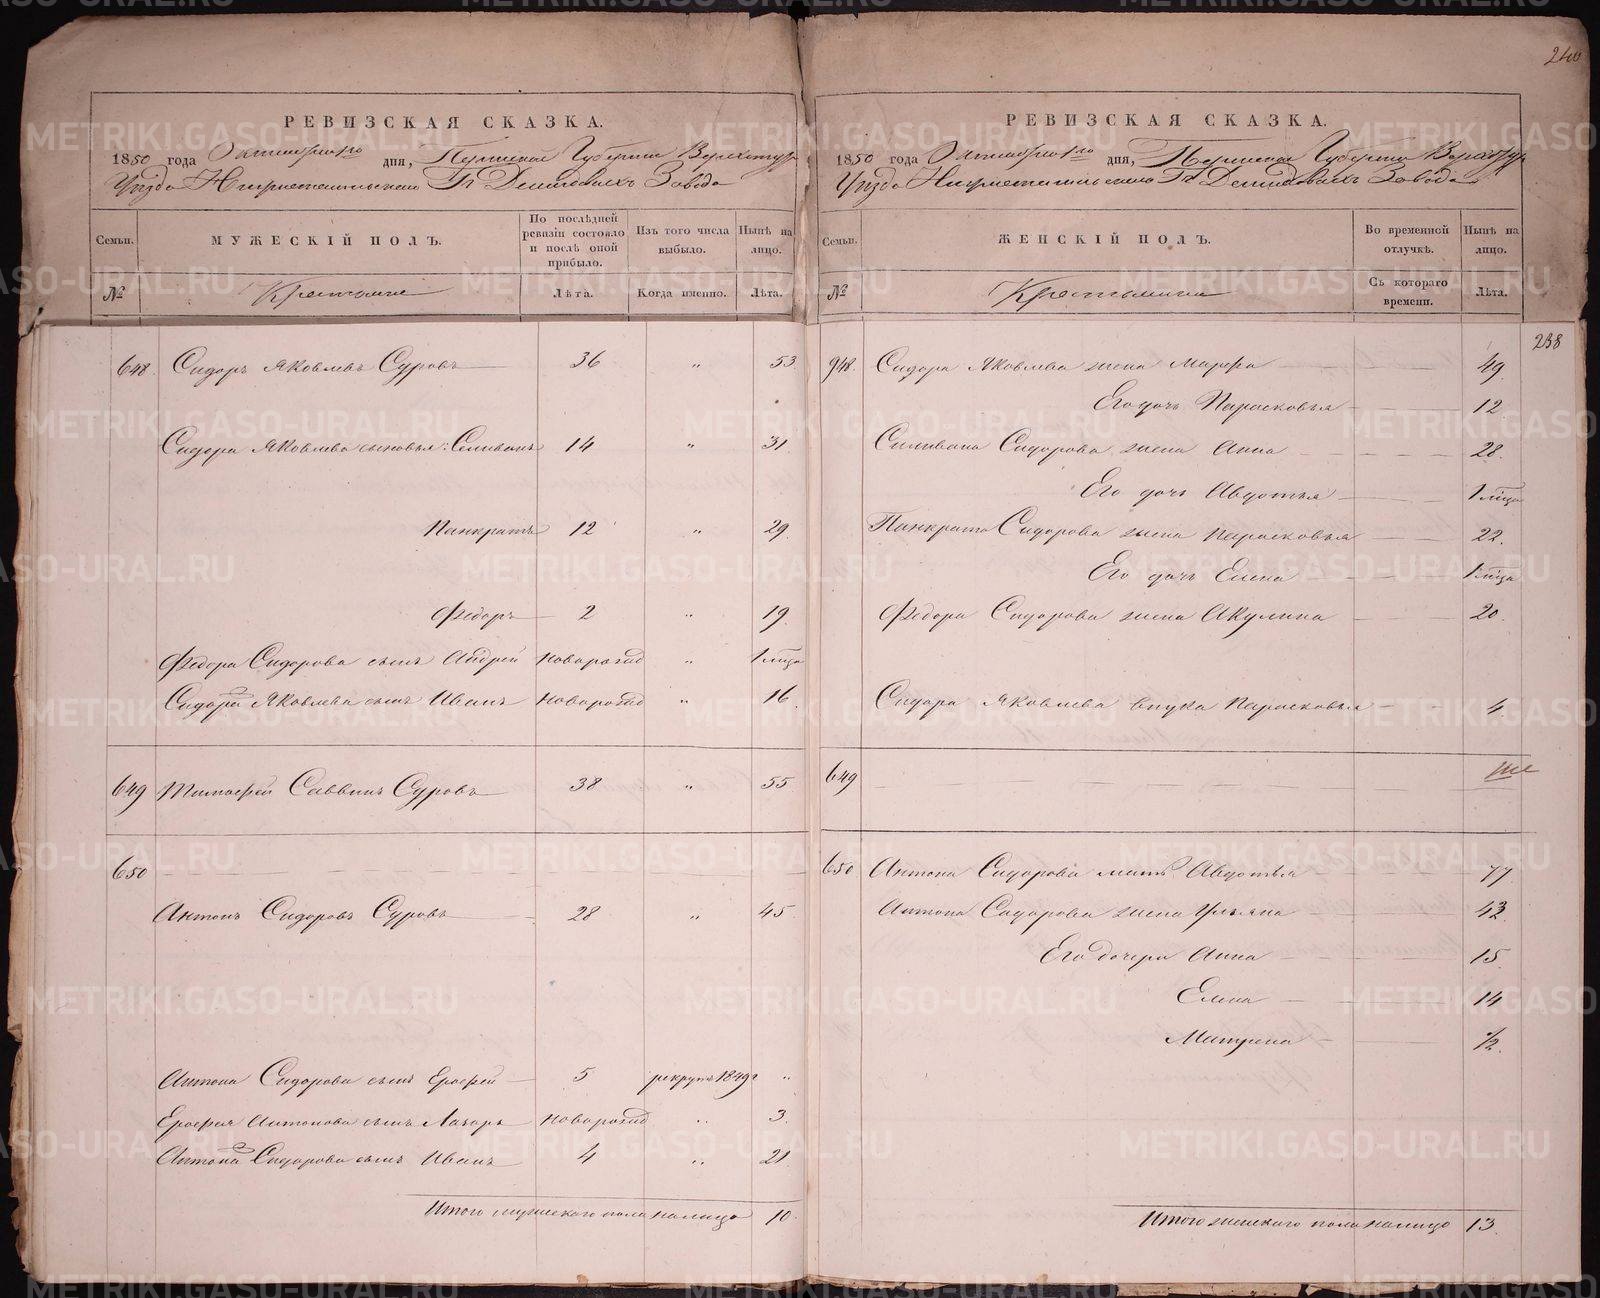 240
РЕВИЗСКАЯ СКАЗКА.
1850 года Октября 1го дня, Пермской Губернии Верхотур
Уезда Нижнетагильского Гг Демидовыхъ Завода
Семьи.
МУЖЕСКІЙ ПОЛЪ.
По послѣдней ревизіи состояло и послѣ оной прибыло.
Изъ того числа выбыло.
Нынѣ на лицо.
№
Крестьяне
Лѣта.
Когда именно.
Лѣта.
648. Сидоръ Яковлевъ Суровъ 36 " 53
Сидора Яковлева сыновья: Селиванъ 14 " 31
Панкратъ 12 " 29
Федоръ 2 " 19
Федора Сидорова сынъ Андрей новорожд " 1 мца
Сидора Яковлева 2 сынъ Иванъ новорожд " 16
649 Тимофей Саввинъ Суровъ 38 " 55
650
Антонъ Сидоровъ Суровъ 28 " 45
Антона Сидорова сынъ Ерофей 5 рекрутъ 1849г "
Ерофея Антонова сынъ Лазарь новорожд " 3
Антона 2 Сидорова сынъ Иванъ 4 " 21
Итого мужеска пола налицо 10
РЕВИЗСКАЯ СКАЗКА.
1850 года Октября 1го дня, Пермской Губерніи Верхотур
Уезда Нижнетагильского Гг Демидовыхъ Завода
Семьи.
ЖЕНСКІЙ ПОЛЪ.
Во временной отлучкѣ.
Нынѣ на лицо.
№
Крестьянки
Съ котораго времени.
Лѣта.
238
948. Сидора Яковлева жена Марфа 49
Его дочь Парасковья 12
Силивана Сидорова жена Анна 28
Его дочь Авдотья 1 мца
Панкрата Сидорова жена Парасковья 22
Его дочь Елена 1 мца
Федора Сидорова жена Акулина 20
Сидора Яковлева внука Парасковья 4
649
650 Антона Сидорова мать Авдотья 77
Антона Сидорова жена Ульяна 43
Его дочери Анна 15
Елена 14
Матрена 1/2
Итого женскаго пола налицо 13
METRIKI.GASO-URAL.RU